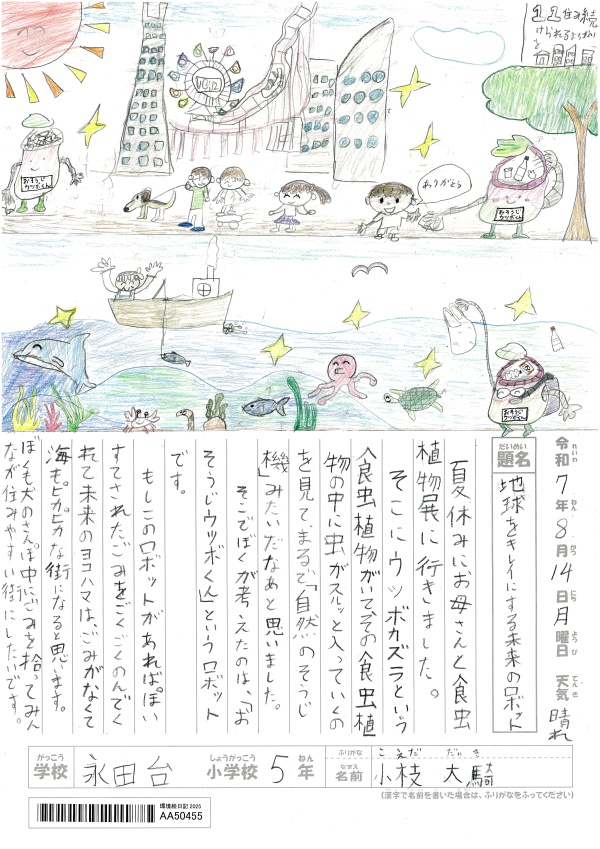 11住み続
けられるまちづくり
を
おそうじ
ウツボくん
ありがとう
おそうじ
ウツボくん
おそうじ
ウツボくん
令和7年8月14日月曜日 天気 晴れ
れいわ ねん がつ にち ようび てんき
だいめい
題名 地球をキレイにする未来のロボット
夏休みにお母さんと食虫
植物展に行きました。
そこにウツボカズラという
食虫植物がいて、その食虫植
物の中に虫がスルッと入っていくの
を見て、まるで「自然のそうじ
機」みたいだなあと思いました。
そこでぼくが考えたのは、「お
そうじウツボくん」というロボット
です。
もしこのロボットがあれば、ぽい
すてされたごみをごくごくのんでく
れて未来のヨコハマは、ごみがなくて
海もピカピカな街になると思います。
ぼくも犬のさんぽ中にごみを拾ってみん
なが住みやすい街にしたいです。
がっこう しょうがっこう ねん
学校 永田台 小学校 5年
ふりがな こえだ だいき
なまえ
名前 小枝 大騎
(漢字で名前を書いた場合は、ふりがなをふってください)
環境絵日記 2025
AA50455